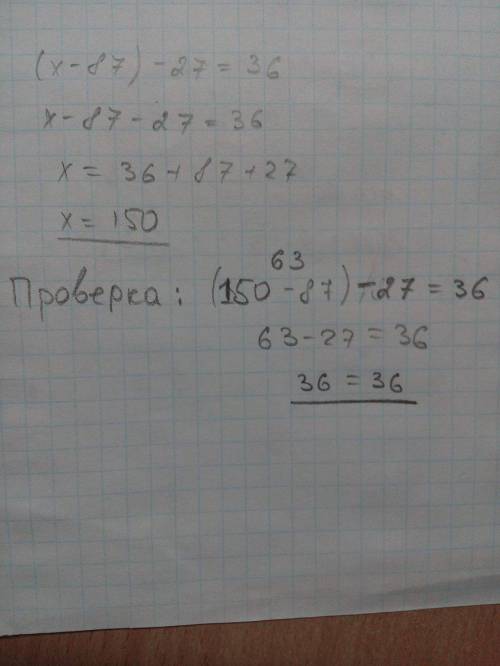 (x-87)-27=36
x-87-27=36
x=36+87+27
x=150
63
Проверка: (150-87)-27=36
63-27=36
36=36